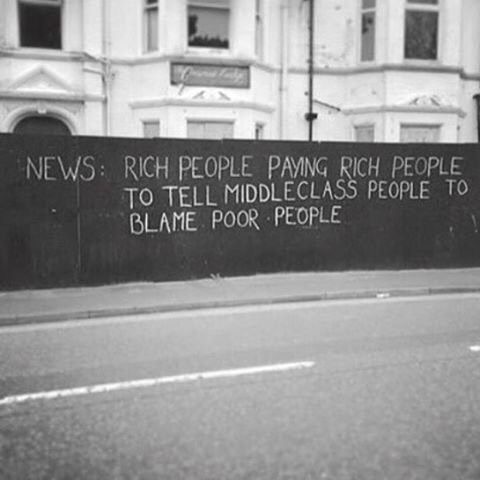 NEWS: RICH PEOPLE PAYING RICH PEOPLE
TO TELL MIDDLECLASS PEOPLE TO
BLAME POOR PEOPLE